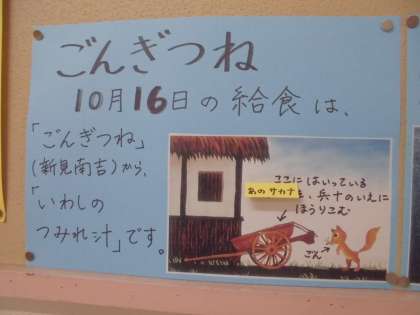 ごんぎつね
10月16日の給食は、
「ごんぎつね」
(新見南吉)から、
「いわしの
つみれ汁」です。
ここにはいっている
あのサカナ
を、兵十のいえに
ほうりこむ
ごん